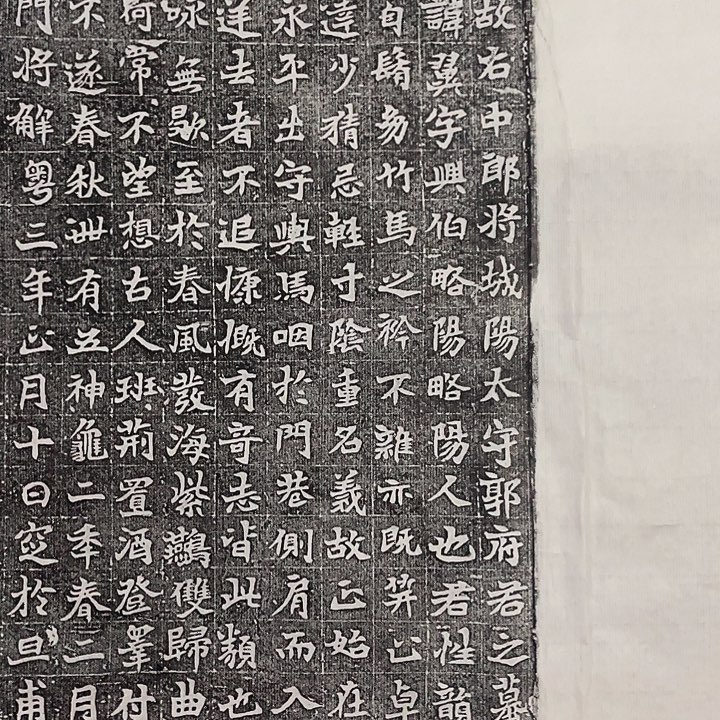 故右中郎将城陽太守郭府君之墓
諱翼字興伯略陽略陽人也君性韻
自髫剪竹馬之衿不雜亦既笄丱卓
達少猜忌輕寸陰重名義故正始在
永平出守輿馬咽於門巷側肩而入
逆去者不追慷慨有奇志皆此類也
咏無歇至於春風發海紫鷰雙歸曲
荷常不望想古人班荊置酒登睪付
不遂春秋卌有五神龜二年春二月
門将解粤三年正月十日窆於旦甫